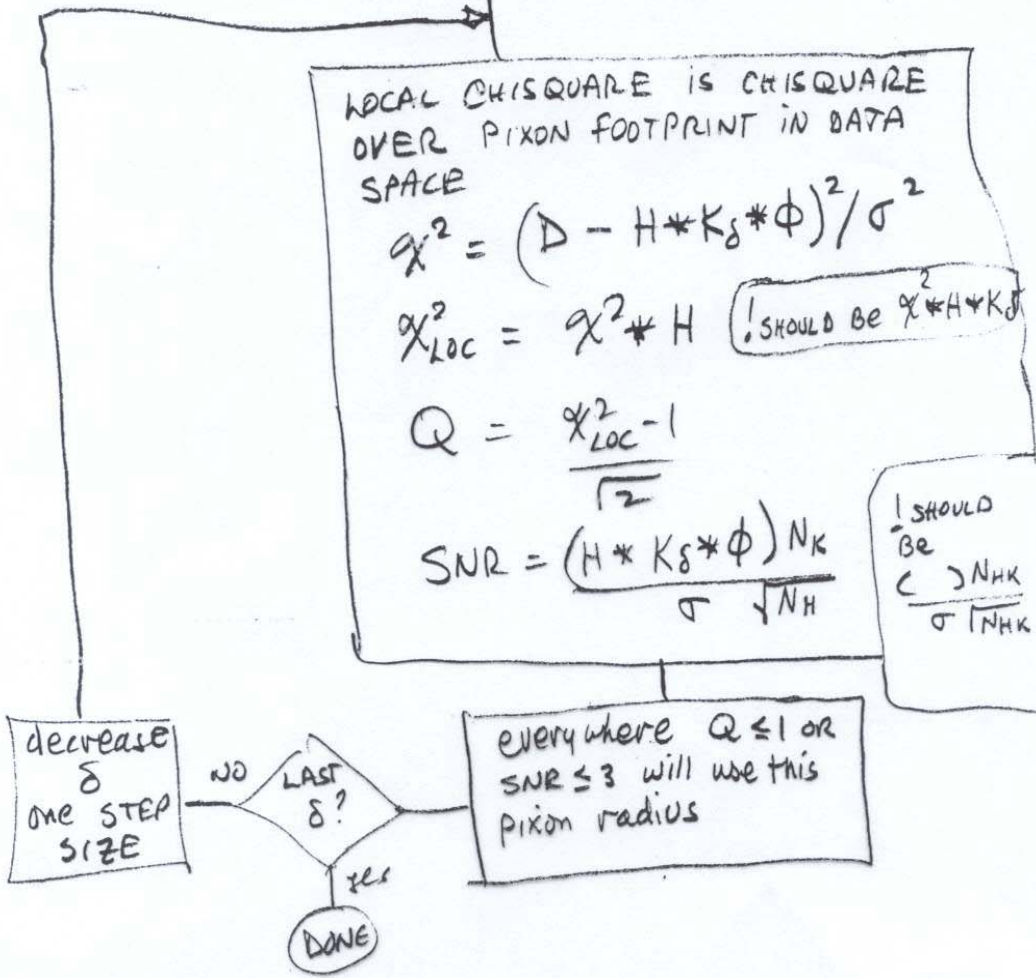 LOCAL CHISQUARE IS CHISQUARE
OVER PIXON FOOTPRINT IN DATA
SPACE
χ² = (D - H * Kδ * Φ)² / σ²
χ²LOC = χ² * H
! SHOULD BE χ² * H * Kδ
Q = (χ²LOC - 1) / √2
SNR = (H * Kδ * Φ) NK / (σ √NH)
! SHOULD
BE
( ) NHK
σ √NHK
everywhere Q ≤ 1 OR
SNR ≤ 3 will use this
pixon radius
LAST
δ?
NO
yes
DONE
decrease
δ
one STEP
SIZE